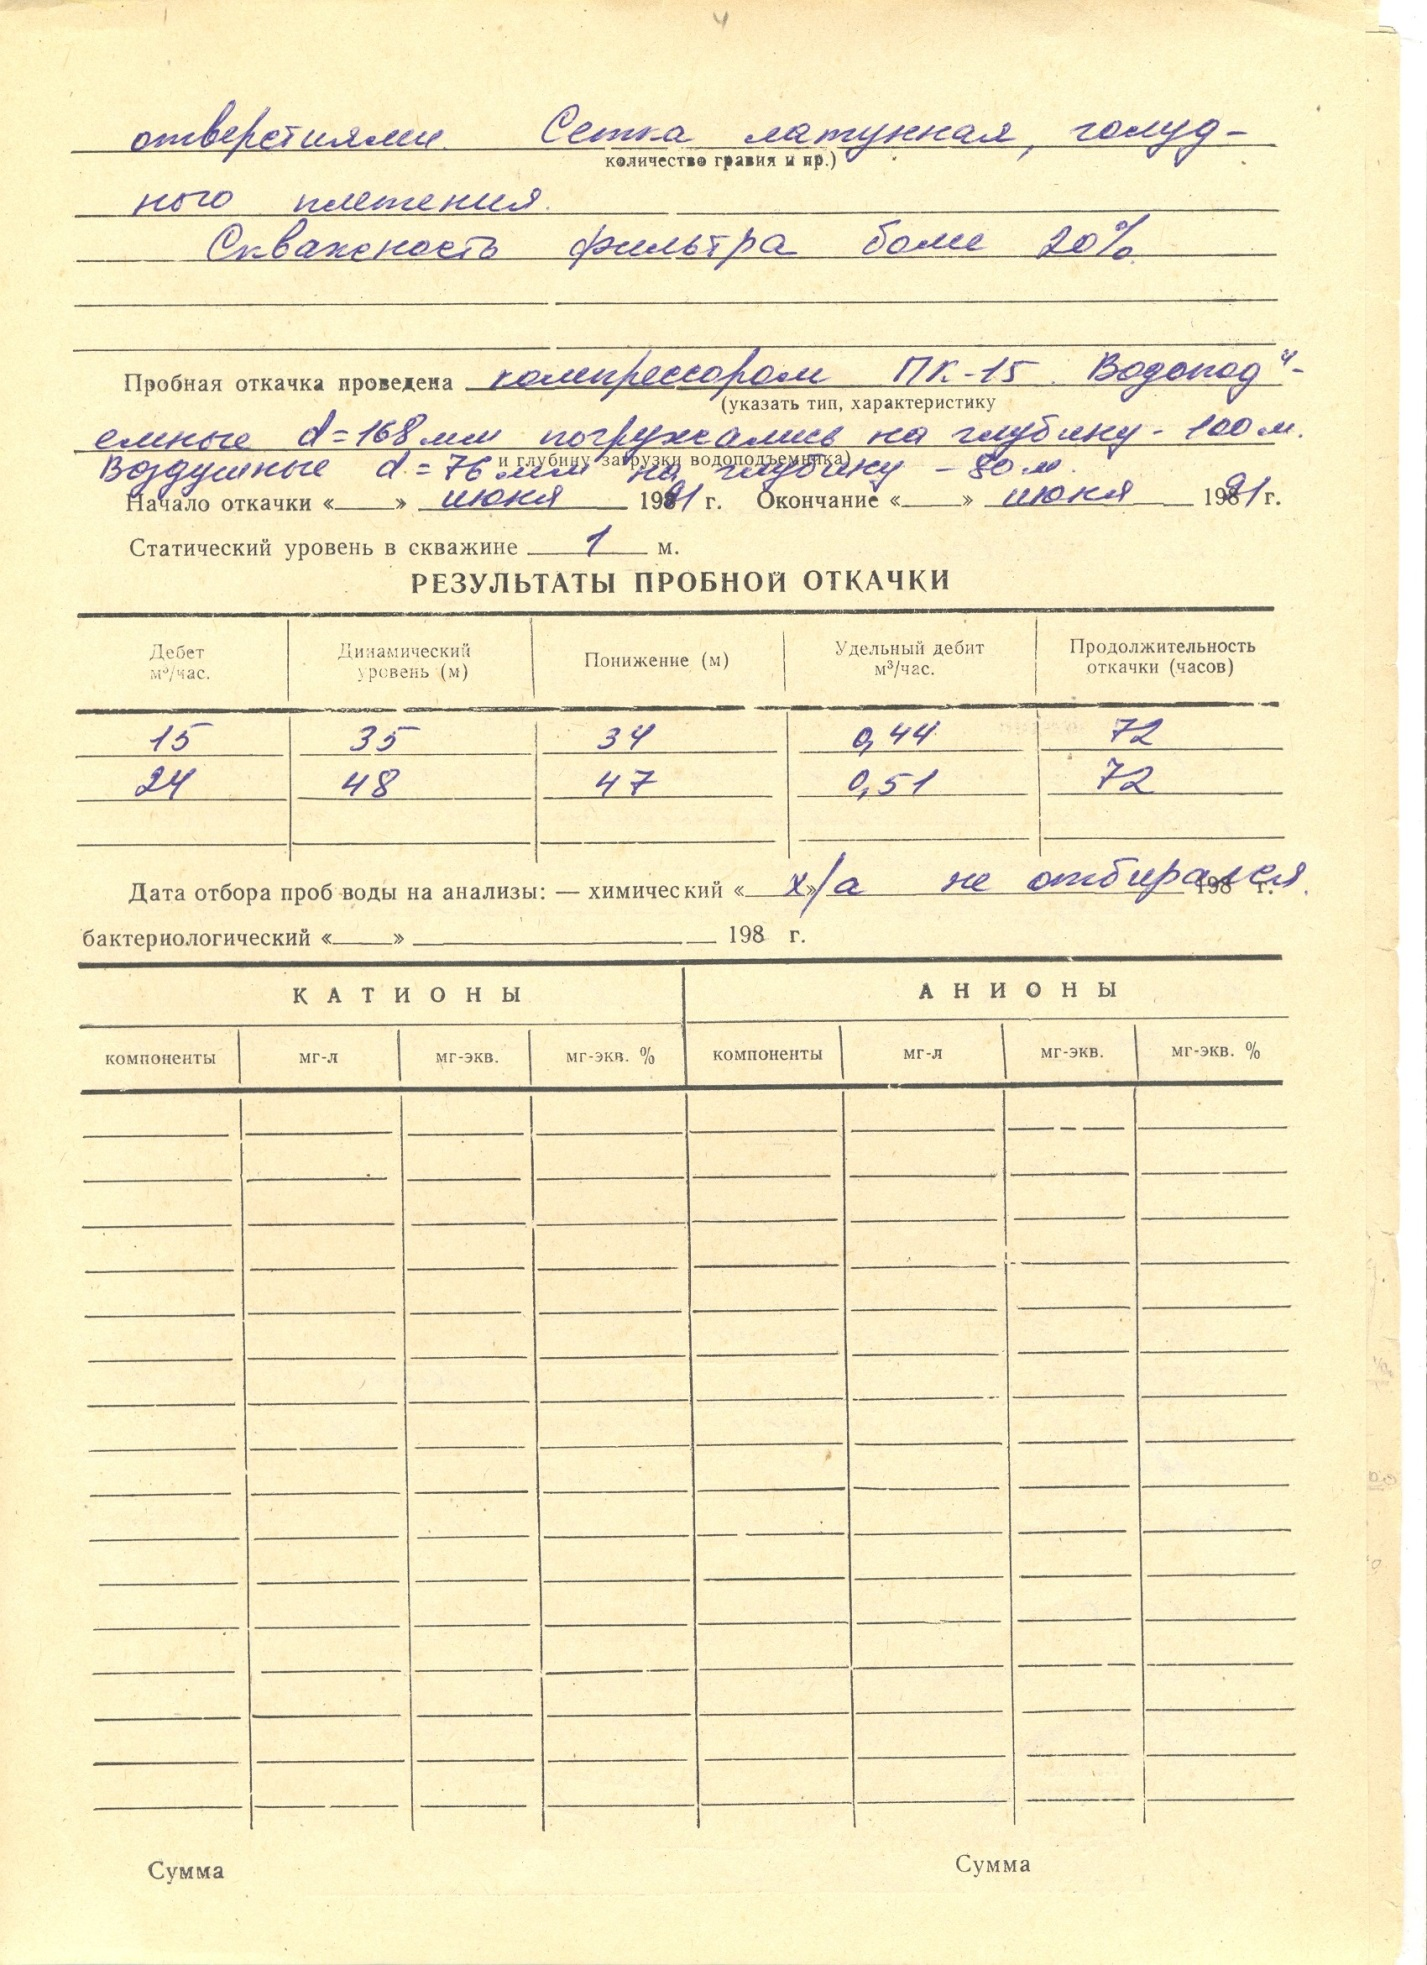 4
отверстиями. Сетка латунная, голуд-
количество гравия и пр.)
ного плетения.
Скважность фильтра более 20%
Пробная откачка проведена компрессором ПК-15. Водопод"-
(указать тип, характеристику
емные d=168мм погружались на глубину - 100м.
и глубину загрузки водоподъемника)
Воздушные d=76 мм на глубину - 80 м.
Начало откачки «___» июня 1991 г. Окончание «___» июня 1991 г.
Статический уровень в скважине 1 м.
РЕЗУЛЬТАТЫ ПРОБНОЙ ОТКАЧКИ
Дебет м³/час. Динамический уровень (м) Понижение (м) Удельный дебит м³/час. Продолжительность откачки (часов)
15 35 34 0,44 72
24 48 47 0,51 72
Дата отбора проб воды на анализы: — химический «___» х/а не отбирался. 198 г.
бактериологический «___» ___ 198 г.
КАТИОНЫ АНИОНЫ
компоненты мг-л мг-экв. мг-экв. % компоненты мг-л мг-экв. мг-экв. %
Сумма Сумма